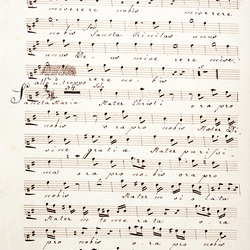 miserere nobis miserere
nobis Sancta Trinitas unus
unus Deus miserere mise
rere nobis
Sancta Maria Mater Christi ora pro
nobis ora pro nobis Mater Di
vine gratia Mater purissi
ma ora nobis ora pro
nobis Mater
Mater in ta ora
pro nobis ora pro nobis